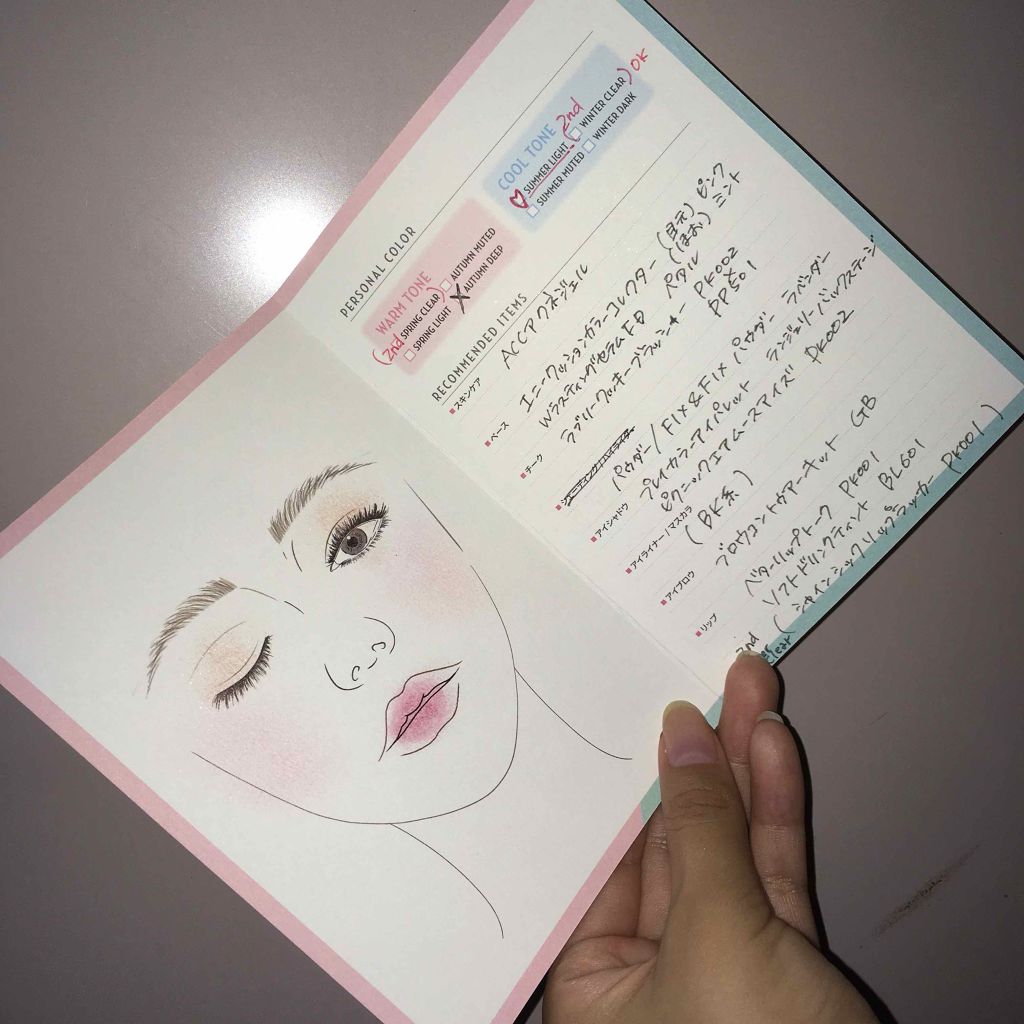 PERSONAL COLOR
WARM TONE
(2nd SPRING CLEAR) AUTUMN MUTED
SPRING LIGHT AUTUMN DEEP
COOL TONE 2nd
SUMMER LIGHT (WINTER CLEAR) OK
SUMMER MUTED WINTER DARK
RECOMMENDED ITEMS
スキンケア
ACCアクネジェル
ベース
エニークッションカラーコレクター (目元) ピンク
WラスティングセラムFD ペタル (ほお) ミント
チーク
ラブリークッキーブラッシャー PK002
PP501
パウダー/FIX&FIX パウダー ラベンダー
アイシャドウ
プレイカラーアイパレット ランジェリーバックステージ
ピクニックエアムースアイズ PK002
アイライナー/マスカラ
(BK系)
アイブロウ
ブロウコントゥアーキット GB
リップ
ベターリップトーク PK001
ソフトドリンクティント BL601
2nd (シャインシックリップラッカー PK001)
clear